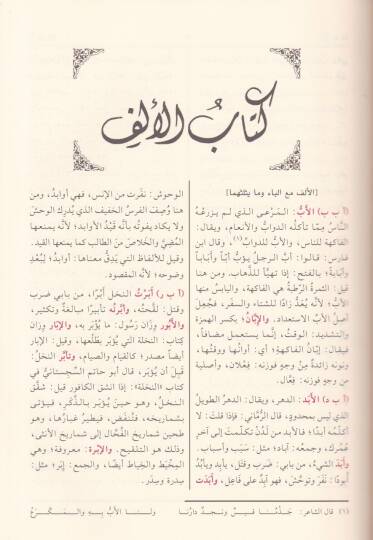 كتاب الألف
[الألف مع الباء وما يثلثهما]
(أ ب ب) الأبُّ: المَرْعى الذي لم يزرعْهُ
النَّاسُ ممّا تأكلُه الدوابُّ والأنعام، ويقال:
الفاكهة للناس، والأبُّ للدوابّ(١)، وقال ابن
فارس: قالوا: أبَّ الرجلُ يَؤُبُّ أبّاً وأَبَاباً
وأَبَابةً، بالفتح: إذا تهيأ للذَّهاب. ومن هنا
قيل: الثمرةُ الرَّطبةُ هي الفاكهة، واليابسُ منها
الأبُّ؛ لأنه يُعَدُّ زاداً للشتاء والسفر، فجُعِلَ
أصلُ الأبّ الاستعداد. والإبَّانُ، بكسر الهمزة
والتشديد: الوقتُ، إنَّما يستعمل مضافاً،
فيقال: إبّانُ الفاكهةِ؛ أي: أوانُها ووقتُها،
ونونه زائدةٌ من وجهٍ فوزنه: فِعْلان، وأصلية
من وجهٍ فوزنه: فِعَّال.
(أ ب د) الأبَد: الدهر، ويقال: الدهر الطويلُ
الذي ليس بمحدودٍ، قال الرُّمَّاني: فإذا قلتَ: لا
أكلّمه أبداً؛ فالأبد من لَدُنْ تكلَّمتَ إلى آخر
عُمُرك، وجمعُه: آباد؛ مثل: سَبَب وأسباب.
وأَبَدَ الشيءُ، من بابي: ضَرَب وقَتَل، يأبِد ويأبُدُ
أبوداً: نَفَرَ وتوحَّشَ، فهو آبِدٌ على فَاعِل، وأَبَدَت
الوحوش: نفَرت من الإنس، فهي أوابدُ، ومن
هنا وُصِفَ الفرسُ الخفيف الذي يُدرِك الوحشَ
ولا يكاد يفوتُه بأنَّه قَيْدُ الأوابد؛ لأنَّه يمنعها
المُضِيَّ والخلاصَ من الطالب كما يمنعها القيد.
وقيل للألفاظ التي يَدِقُّ معناها: أوابدُ؛ لبُعْدِ
وضوحه؛ لأنه المقصود.
(أ ب ر) أَبَرْتُ النخلَ أَبْراً، من بابي ضرب
وقتل: لقَّحتُه، وأبَّرتُه تأبيراً مبالغةٌ وتكثير،
والأَبُور وِزَان رَسُول: ما يُؤْبَر به، والإِبَار وِزَان
كِتَاب: النخلة التي يُؤْبَر بطَلْعِها، وقيل: الإبار
أيضاً مصدر؛ كالقيام والصيام، وتأبَّر النخلُ:
قَبِلَ أن يُؤْبَر، قال أبو حاتم السِّجِستاني في
كتاب «النخلة»: إذا انشقّ الكافور قيل: شقَّق
النخلُ، وهو حينَ يُؤبَر بالذَّكَر، فيؤتى
بشماريخه، فتُنفَض، فيطيرُ غبارُها، وهو
طحين شماريخِ الفُحَّال إلى شماريخ الأنثى،
وذلك هو التلقيح. والإبْرة: معروفة؛ وهي
المِخْيَط والخِيَاط أيضاً، والجمع: إِبَر؛ مثل:
سِدرة وسِدَر.
(١) قال الشاعر: جَذْمُنا قَيسٌ ونجدٌ دارُنا ولنا الأبُّ به والمَكرَعُ